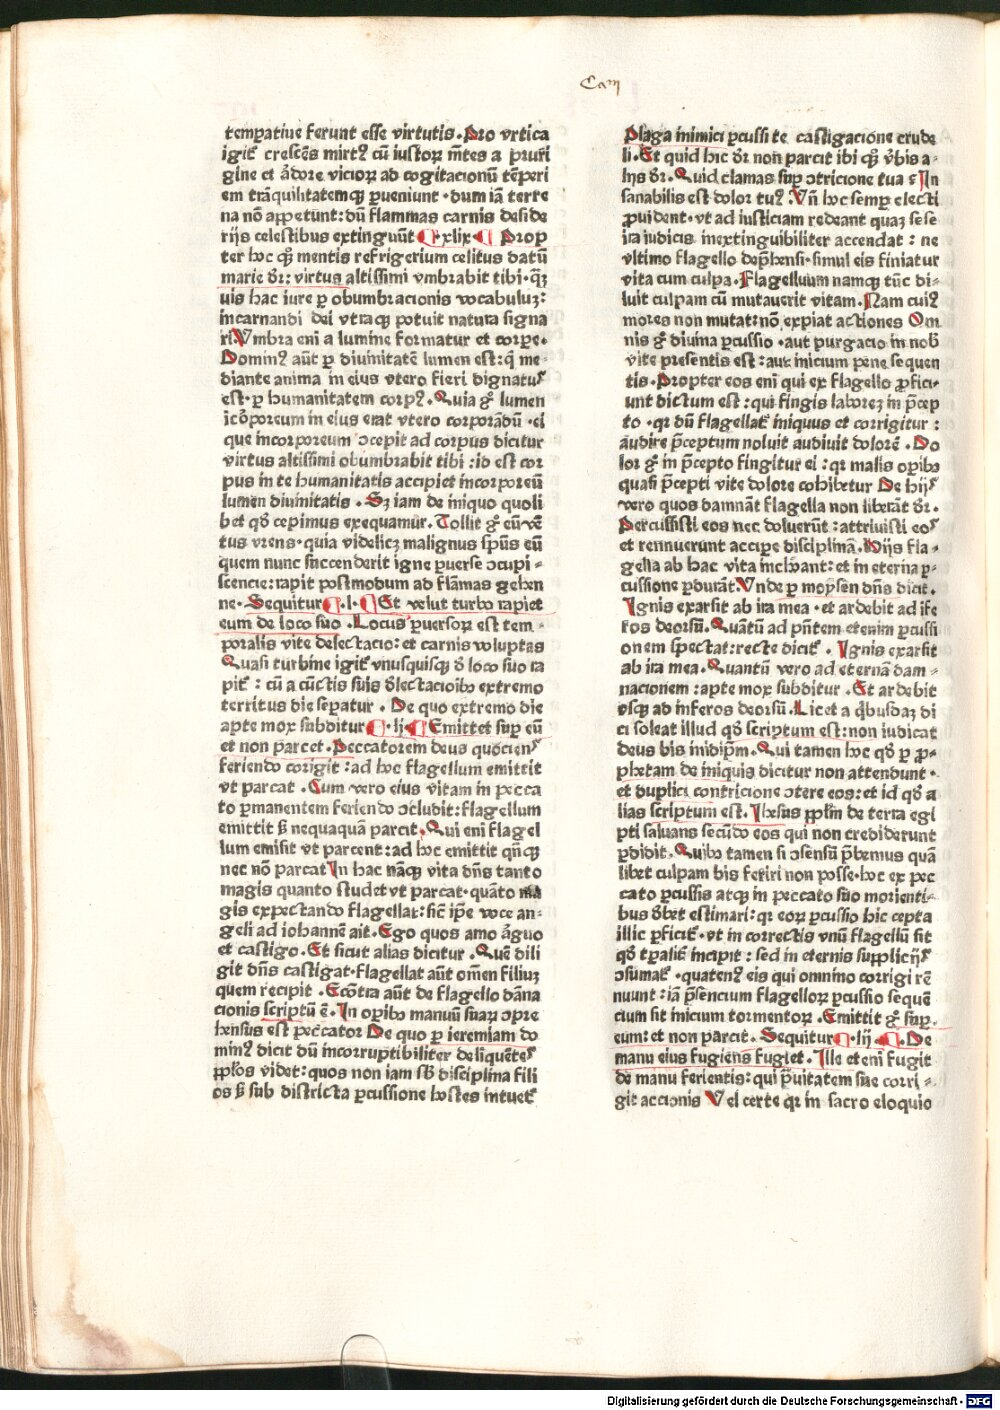 temperatiue ferunt esse virtutis. Pro vrtica
igit᷑ crescēs mirtꝰ cū iustoꝝ mētes a pruri
gine et ardore vicioꝝ ad cogitacionū tēperi
em trāquilitatemqꝫ ꝑueniunt. dum iā terre
na nō appetunt: dū flammas carnis deside
rijs celestibus extinguūt .xlix. Prop
ter hoc qꝫ mentis refrigerium celitus datū
marie dr̄: virtus altissimi vmbrabit tibi. q̄ꝫ
uis hac iure ꝑ obumbracionis vocabuluꝫ:
incarnandi dei vtraqꝫ potuit natura signa
ri. Vmbra eni a lumine formatur et corpe.
Dominꝰ aūt ꝑ diuinitatē lumen est: q̄ me
diante anima in eius vtero fieri dignatus
est. ꝑ humanitatem corpꝰ. Quia gͦ lumen
īcorporeum in eius erat vtero corporādū. ei
que incorporeum ↄcepit ad corpus dicitur
virtus altissimi obumbrabit tibi: id est cor
pus in te humanitatis accipiet incorporeū
lumen diuinitatis. Sꝫ iam de iniquo quoli
bet qd̄ cepimus exequamur. Tollit gͦ eū vē
tus vrens. quia videlicꝫ malignus spūs eū
quem nunc succenderit igne ꝑuerse ↄcupi-
scencie: rapit postmodum ad flāmas gehen
ne. Sequitur .l. Et velut turbo rapiet
eum de loco suo. Locus ꝑuersoꝝ est tem-
poralis vite delectacio: et carnis voluptas
Quasi turbine igit᷑ vnusquisqꝫ d̄ loco suo ra
pit᷑: cū a cūctis suis d̄lectacioībꝰ extremo
territus die seꝑatur. De quo extremo die
apte mox subditur .lj. Emittet suꝑ eū
et non parcet. Peccatorem deus quociens
feriendo corigit: ad hoc flagellum emittit
vt parcat. Cum vero eius vitam in pecca
to ꝑmanentem feriendo ↄcludit: flagellum
emittit sꝫ nequaquā parcit. Qui eni flagel
lum emisit vt parcent: ad hoc emittit qn̄qꝫ
nec nō parcat In hac nāqꝫ vita dn̄s tanto
magis quanto studet vt parcat. quāto ma
gis expectando flagellat: sic ip̄e voce an-
geli ad iohannē ait. Ego quos amo arguo
et castigo. Et sicut alias dicitur. Quē dili
git dn̄s castigat. flagellat aūt om̄en filiuꝫ
quem recipit. Ecōtra aūt de flagello dāna
cionis scriptū ē. In oꝑibꝰ manuū suaꝝ ↄpre
hensus est peccator De quo ꝑ ieremiam do
minꝰ dicit dū incorruptibiliter deliquētes
pplōs videt: quos non iam sub disciplina fili
os sꝫ sub districta ꝑcussione hostes intuet᷑
Plaga inimici ꝑcussi te castigacione crude
li. Et quid hic dr̄ non parcit ibi qꝫ v̄bis a-
lijs dr̄. Quid clamas suꝑ ↄtricione tua? In
sanabilis est dolor tuꝰ. Vn̄ hoc semꝑ electi
ꝓuident. vt ad iusticiam redeant quaꝫ se se
ira iudicis inextinguibiliter accendat: ne
vltimo flagello dep̄hensi. simul eis finiatur
vita cum culpa. Flagelluum namqꝫ tūc di-
luit culpam cū mutauerit vitam. Nam cuiꝰ
mores non mutat: nō expiat actiones Om
nis gͦ diuina ꝑcussio. aut purgacio in nob̄
vite presentis est: aut inicium pene sequen
tis. Propter eos eni qui ex flagello ꝓfici-
unt dictum est: qui fingis laboreꝫ in p̄cep
to. qꝛ dū flagellat᷑ iniquus et corrigitur:
audire p̄ceptum noluit audiuit dolorē. Do
lor gͦ in p̄cepto fingitur ei: qꝛ malis oꝑibꝰ
quasi p̄cepti vite dolore cohibetur De hijs
vero quos damnāt flagella non liberāt dr̄.
Percussisti eos nec doluerūt: attriuisti eos
et rennuerunt accipe disciplinā. Hijs fla-
gella ab hac vita inchoant: et in eterna ꝑ-
cussione ꝑdurāt. Vnde ꝑ moysen dn̄s dicit.
Ignis exarsit ab ira mea. et ardebit ad ife
ros deorsū. Quātū ad pn̄tem etenim ꝑcussi
onem spectat: recte dicit᷑. Ignis exarsit
ab ira mea. Quantū vero ad eternā dam-
nacionem: apte mox subditur. Et ardebit
vsqꝫ ad inferos deorsū. Licet a qͥbusdaꝫ di
ci soleat illud qd̄ scriptum est: non iudicat
deus bis inidip̄m. Qui tamen hoc qd̄ ꝑ ꝓ-
phetam de iniquis dicitur non attendunt.
et duplici contricione ↄtere eos: et id qd̄ a
lias scriptum est. Ihesus pplm̄ de terra egi
pti saluans secūdo eos qui non crediderunt
ꝑdidit. Quibꝰ tamen si ↄsensū p̄bemus quā
libet culpam bis feriri non posse. hoc ex pec
cato ꝑcussis atqꝫ in peccato suo morienti-
bus d̄bet estimari: qꝛ eoꝝ ꝑcussio hic cepta
illic ꝑficit᷑. vt in correctis vnū flagellū sit
qd̄ tꝑalit᷑ incipit: sed in eternis supplicijs
ↄsūmat᷑. quatenꝰ eis qui omnino corrigi rē
nuunt: iā p̄sencium flagelloꝝ ꝑcussio sequē
cium sit inicium tormentoꝝ. Emittit gͦ suꝑ.
eum: et non parcit. Sequitur .lij. De
manu eius fugiens fugiet. Ille et enī fugit
de manu ferientis: qui p̄uitatem sue corri-
git accionis Vel certe qꝛ in sacro eloquio
Digitalisierung gefördert durch die Deutsche Forschungsgemeinschaft - DFG